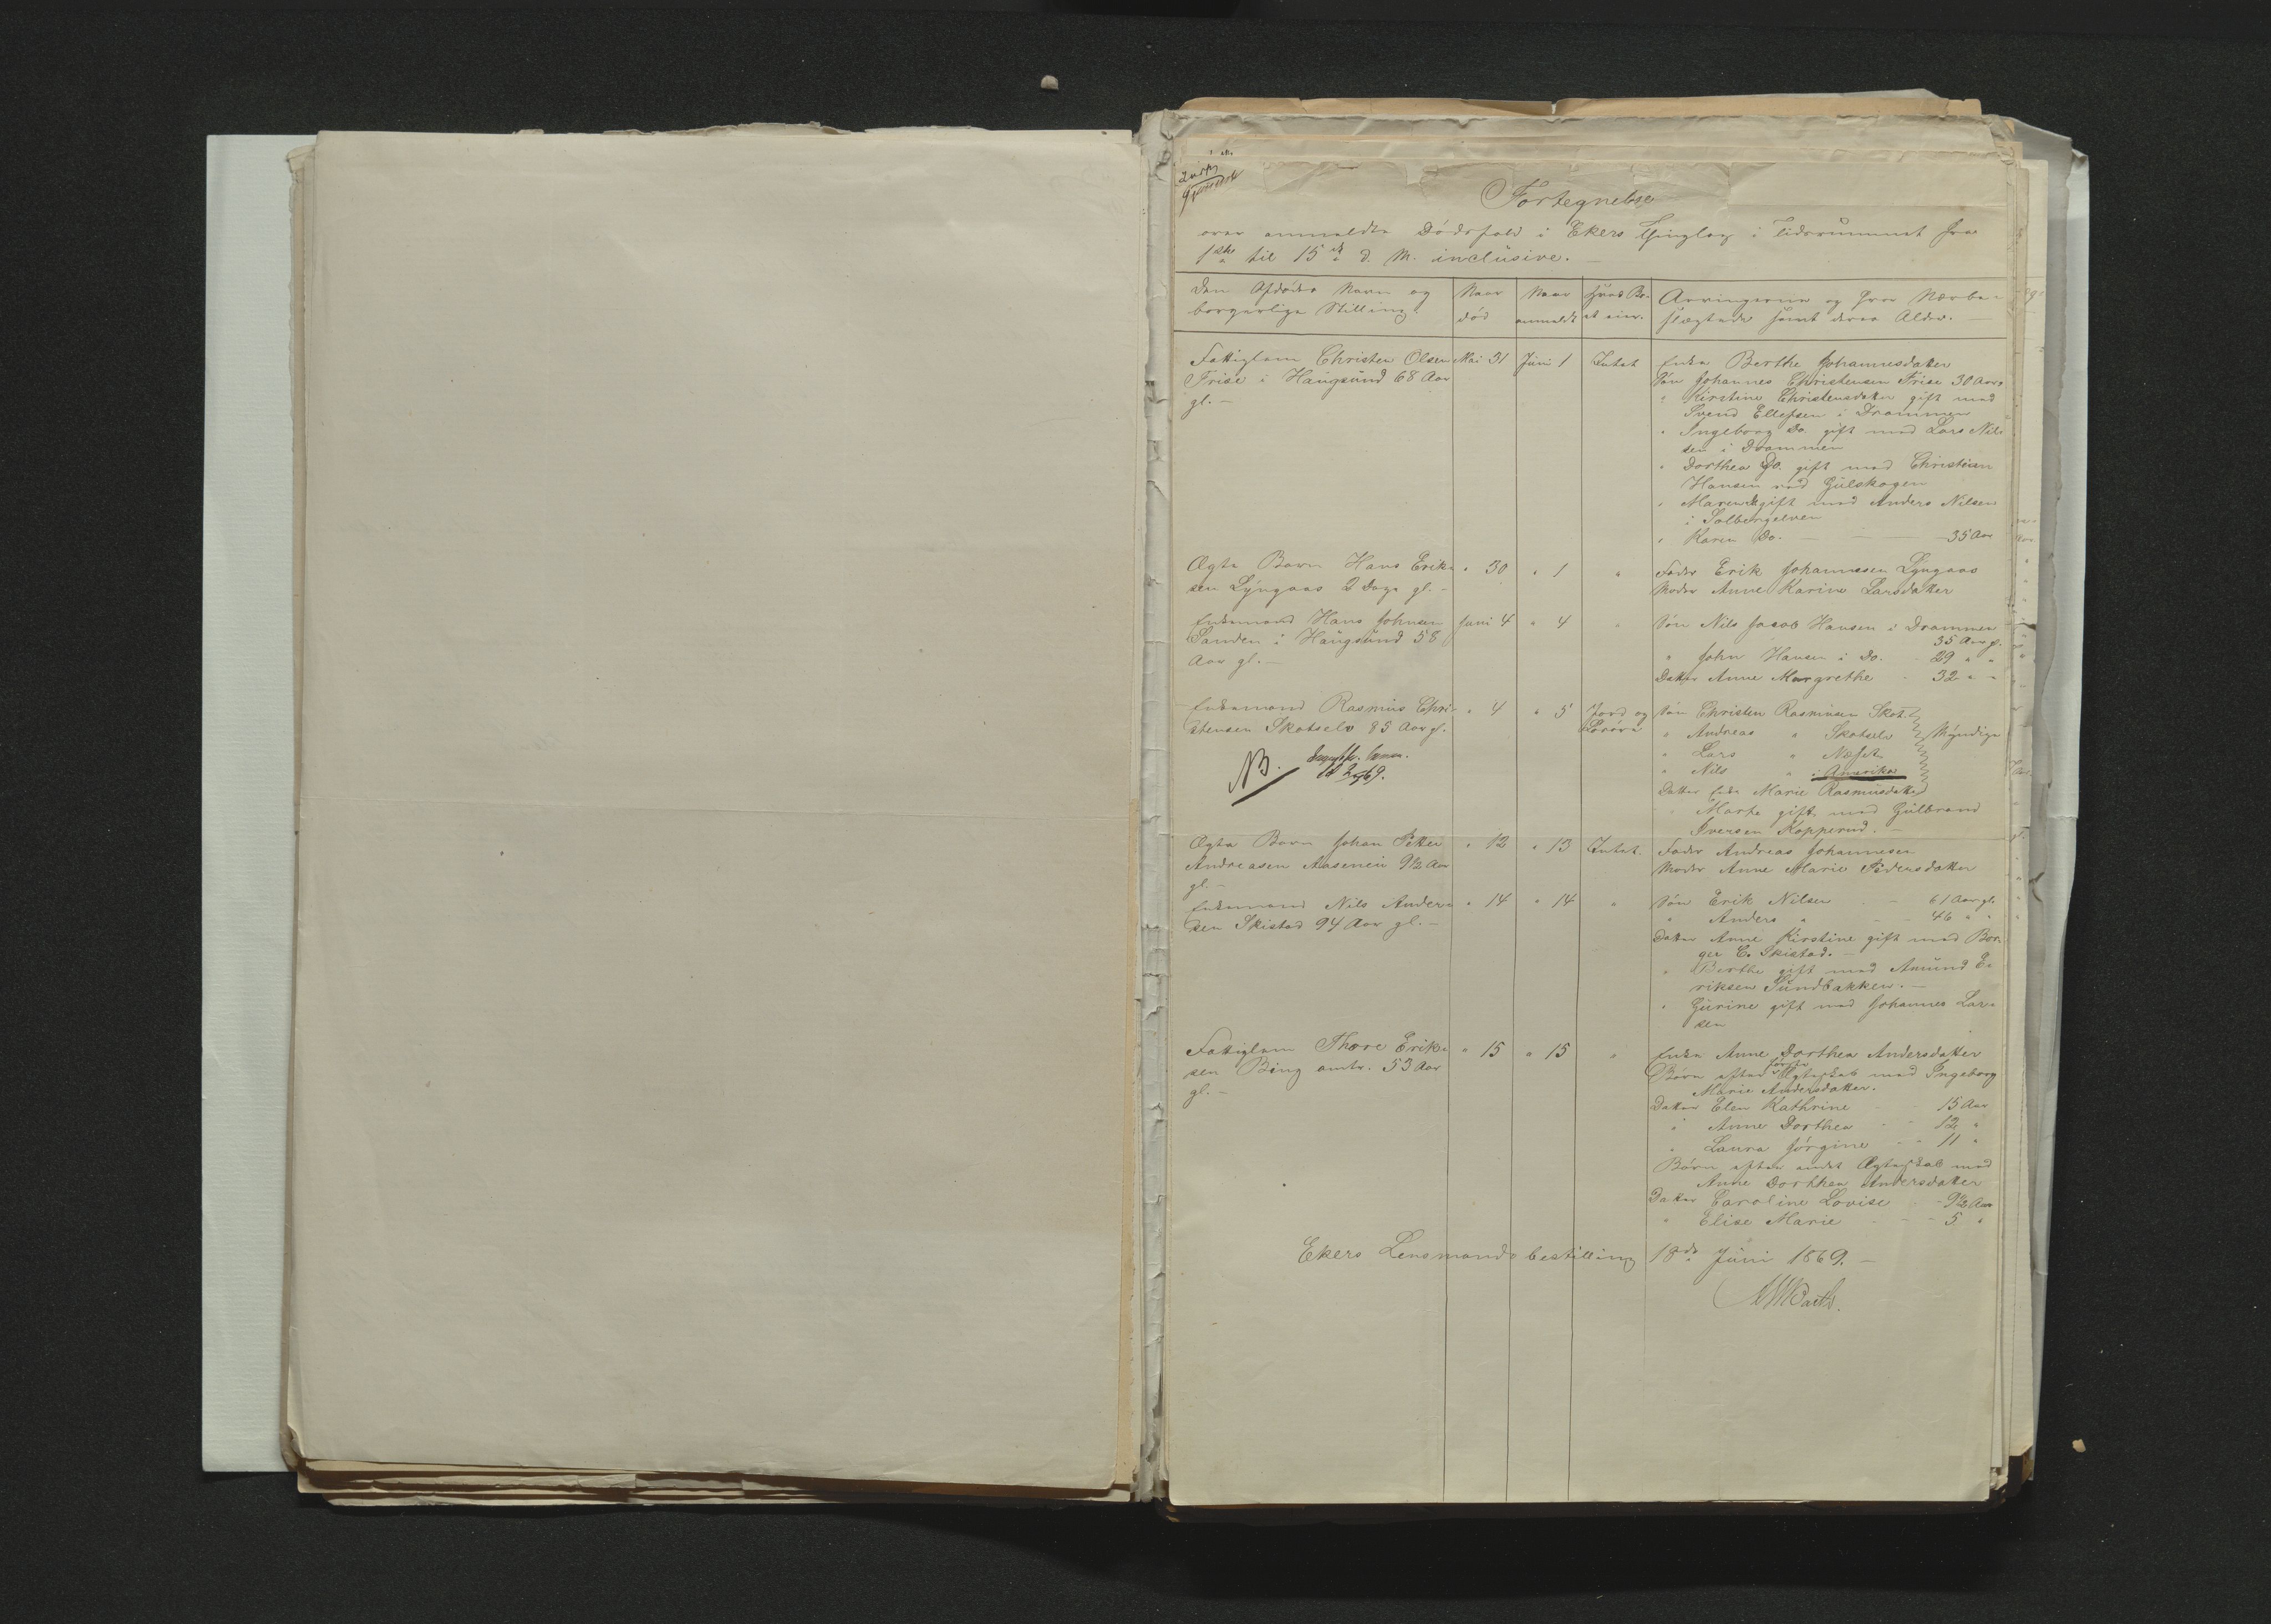 Fortegnelse
over anmeldte Dødsfald i Ekers Thinglag i Tidsrummet fra
1ste til 15de d. M. inclusive. —
Den Afdødes Navn og borgerlige Stilling.
Naar død
Naar anmeldt
Hvad Bo- et eier.
Arvingerne og hvor Nærbe- slægtede samt deres Alder. —
Fattiglem Christen Olsen Mai 31 Juni 1 Intet Enke Berthe Johannesdatter
Frise i Haugsund 68 Aar Søn Johannes Christensen Frise 30 Aar
gl. — " Kirstine Christensdatter gift med
Svend Ellefsen i Drammen
" Ingeborg Do. gift med Lars Nil-
sen i Drammen
" Dorthea Do. gift med Christian
Hansen ved Gulskogen
" Maren gift med Anders Nilsen
i Solbergelven
" Karen Do. — — — 35 Aar
Ægte Barn Hans Erik- " 30 " 1 " Fader Erik Johannesen Lyngaas
sen Lyngaas 2 Dage gl. — Moder Anne Karine Larsdatter
Enkemand Hans Johnsen Juni 4 " 4 " Søn Nils Jacob Hansen i Drammen
Sanden i Haugsund 58 35 Aar gl.
Aar gl. — " John Hansen i Do. 29 " "
Datter Anne Margrethe 32 " "
Enkemand Rasmus Chri- " 4 " 5 Jord og Søn Christen Rasmusen Skot.
stensen Skotselv 85 Aar gl. Løsøre " Andreas " Skotselv Myndige
" Lars " Næset
NB. " Nils " i Amerika
Datter Enke Marie Rasmusdatter
" Marte gift med Gulbrand
Iversen Kopperud. —
Ægte Barn Johan Petter " 12 " 13 Intet. Fader Andreas Johannesen
Andreasen Aaseneie 9½ Aar Moder Anne Marie Pedersdatter
gl. —
Enkemand Nils Ander- " 14 " 14 " Søn Erik Nilsen — 61 Aar gl.
sen Skistad 94 Aar gl. — " Anders " — 46 " "
Datter Anne Kirstine gift med Bor-
ger E. Skistad. —
" Berthe gift med Amund E-
riksen Sundbakken. —
" Gurine gift med Johannes Lar-
sen
Fattiglem Thore Erik- " 15 " 15 " Enke Anne Dorthea Andersdatter
sen Bing omtr. 53 Aar Børn efter første Ægteskab med Ingeborg
gl. — Marie Andersdatter.
Datter Elen Kathrine 15 Aar
" Anne Dorthea 12 "
" Laura Jørgine 11 "
Børn efter andet Ægteskab med
Anne Dorthea Andersdatter
Datter Caroline Lovise 9½ Aar
" Elise Marie 5 "
Ekers Lensmandsbestilling 18de Juni 1869. —